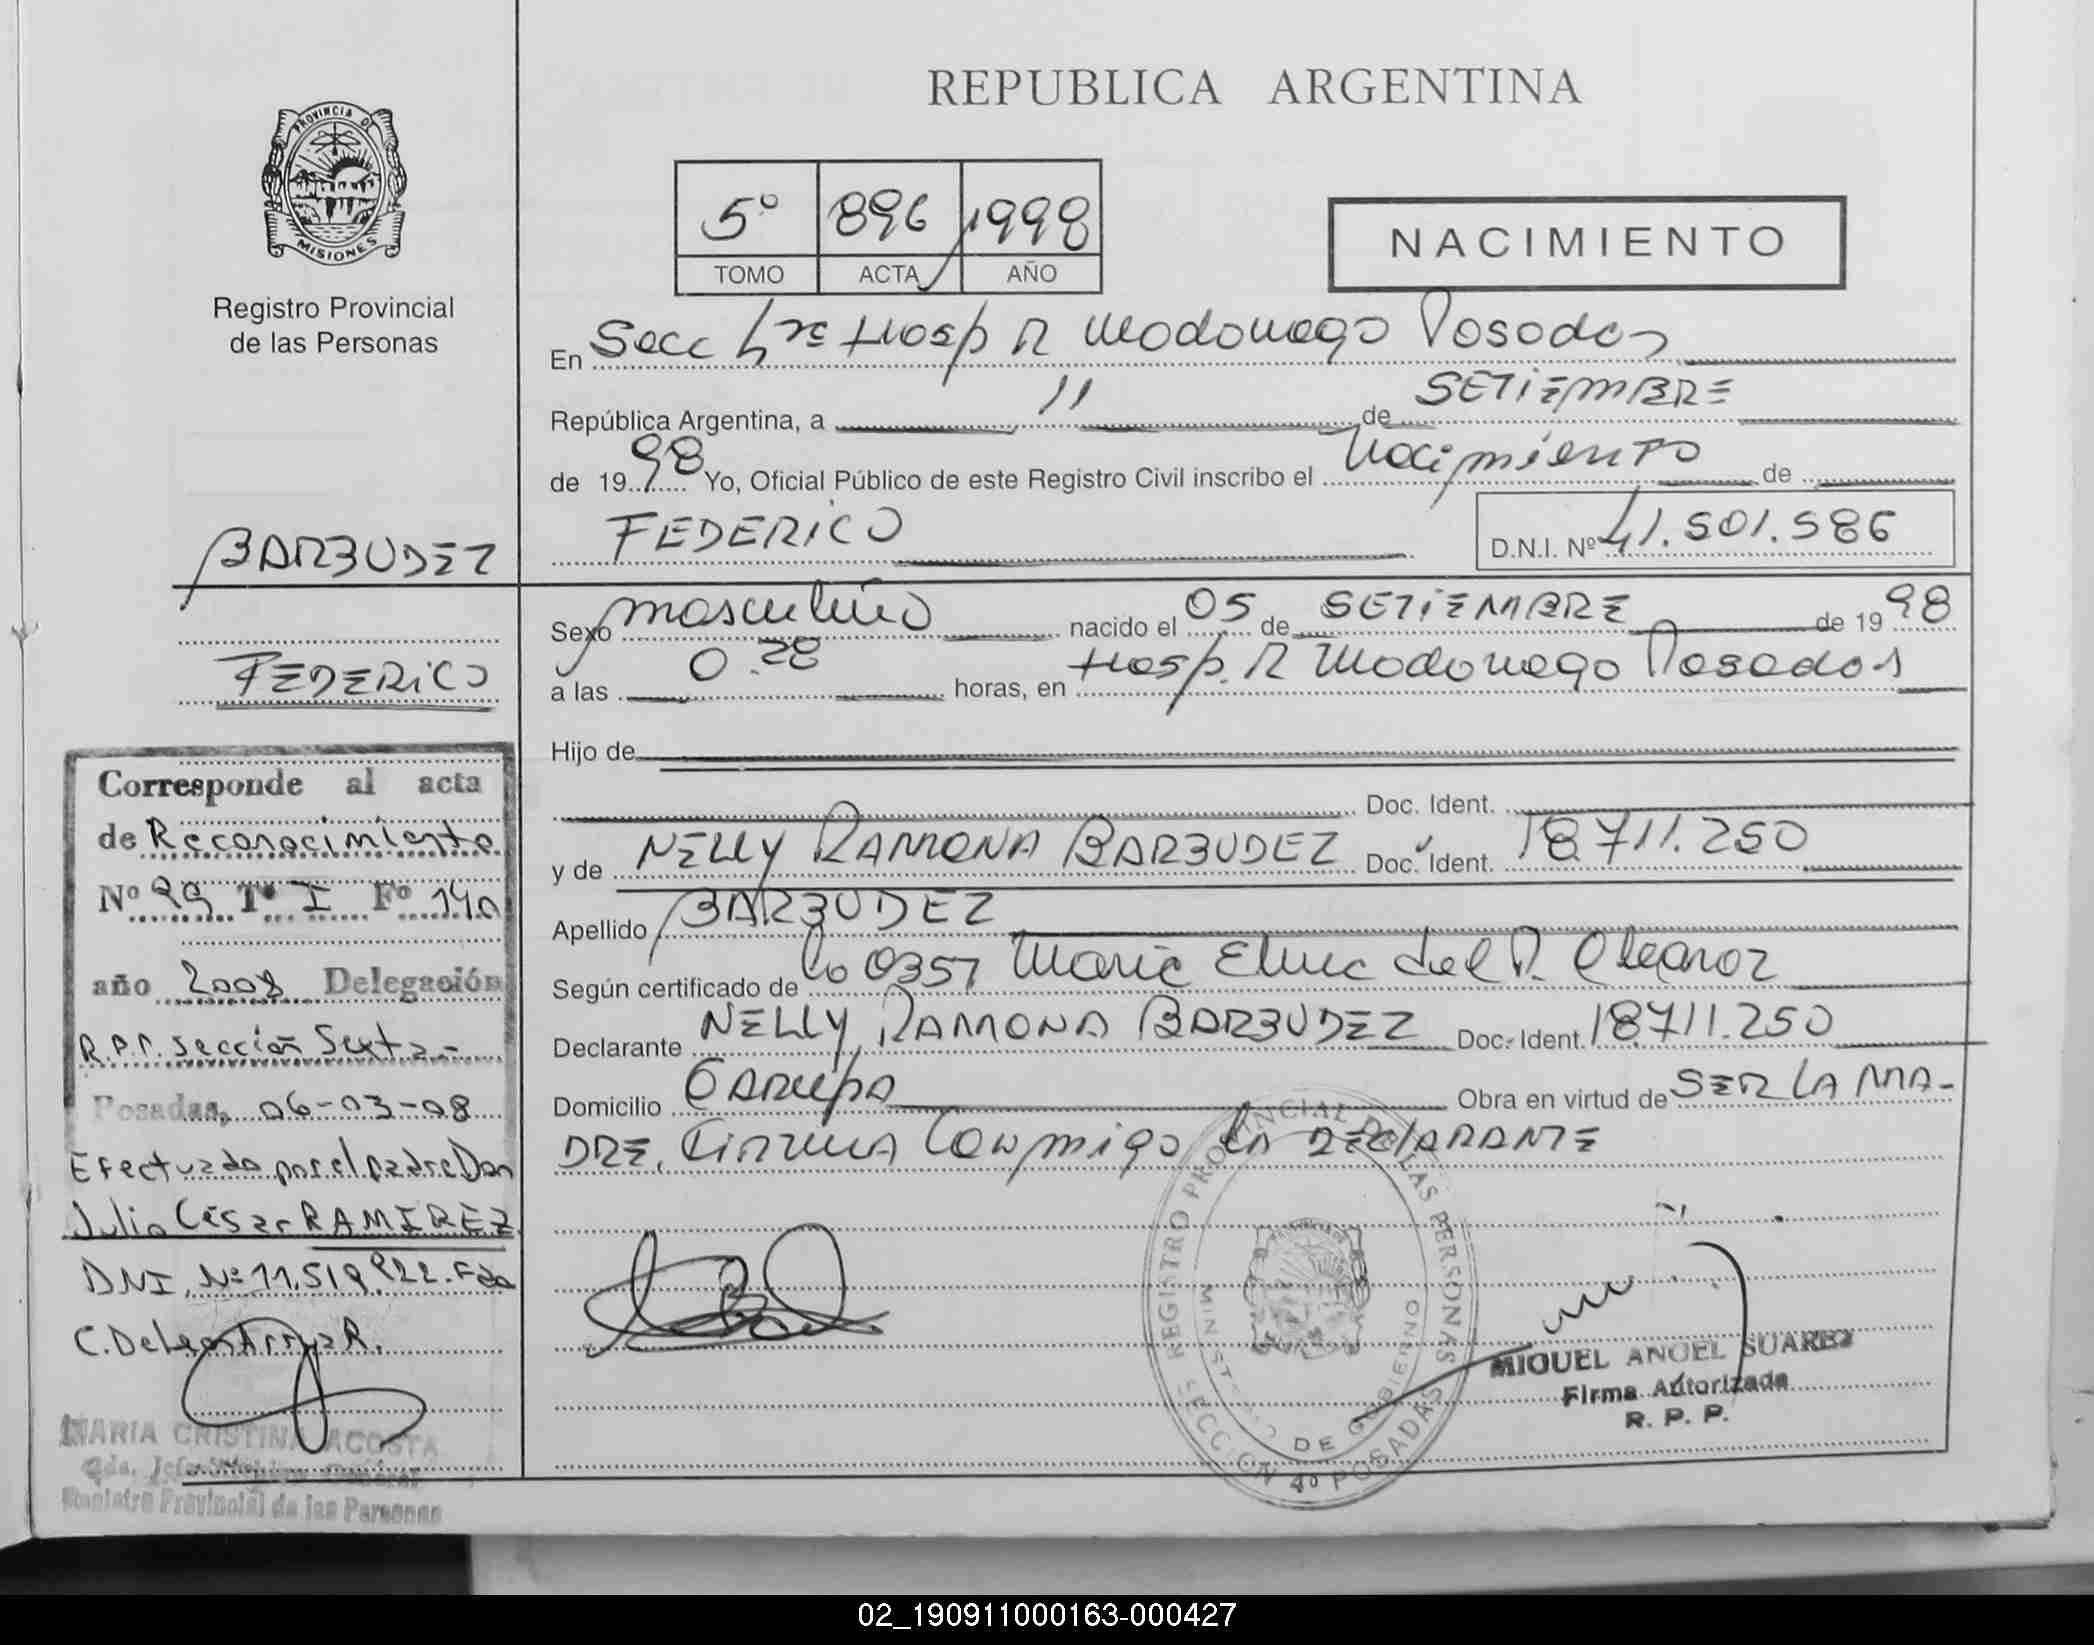 REPUBLICA ARGENTINA
PROVINCIA DE
MISIONES
Registro Provincial
de las Personas
5º 896 1998
TOMO ACTA AÑO
NACIMIENTO
En Secc 4ta Hosp R Madariaga Posadas
República Argentina, a 11 de SETIEMBRE
de 1998 Yo, Oficial Público de este Registro Civil inscribo el Nacimiento de
FEDERICO D.N.I. Nº 41.501.586
BARBUDEZ
FEDERICO
Sexo masculino nacido el 05 de SETIEMBRE de 1998
a las 0.28 horas, en Hosp. R Madariaga Posadas
Hijo de
Doc. Ident.
y de NELLY RAMONA BARBUDEZ Doc. Ident. 18.711.250
Apellido BARBUDEZ
Según certificado de 0357 Maria del
Declarante NELLY RAMONA BARBUDEZ Doc. Ident. 18.711.250
Domicilio GARUPA Obra en virtud de SER LA MA-
DRE, FIRMA CONMIGO LA DECLARANTE
Corresponde al acta
de Reconocimiento
Nº 99 Tº I Fº
año 2008 Delegación
R.P.P. sección Sexta.-
Posadas, 06-03-08
Efectuado por el padre Don
Julio César RAMIREZ
DNI. Nº 11.519.922. Fdo
C. Delegan
MARIA CRISTINA ACOSTA
Registro Provincial de las Personas
REGISTRO PROVINCIAL DE LAS PERSONAS
MINISTERIO DE GOBIERNO
SECCION 4º POSADAS
MIGUEL ANGEL SUAREZ
Firma Autorizada
R. P. P.
02_190911000163-000427